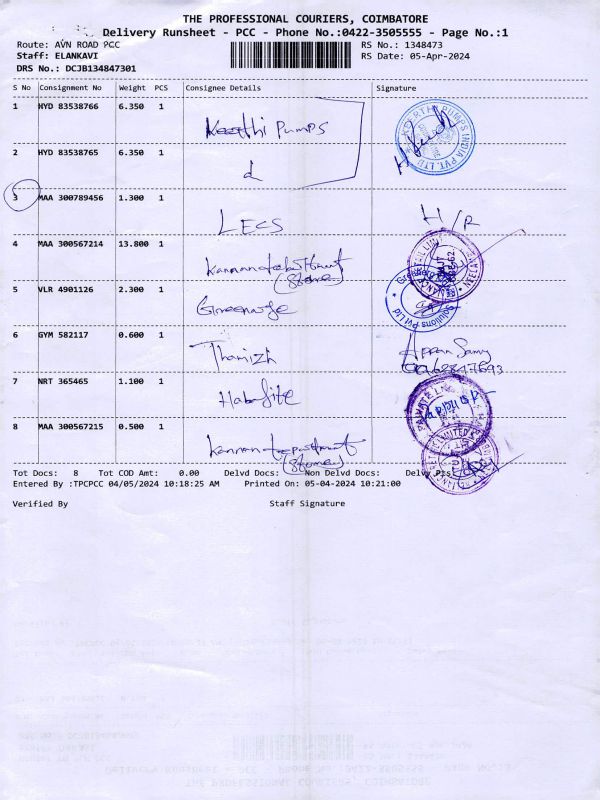 THE PROFESSIONAL COURIERS, COIMBATORE
Delivery Runsheet - PCC - Phone No.:0422-3505555 - Page No.:1
Route: AVN ROAD PCC
RS No.: 1348473
Staff: ELANKAVI
RS Date: 05-Apr-2024
DRS No.: DCJB134847301
S No Consignment No Weight PCS Consignee Details Signature
1 HYD 83538766 6.350 1 Pumps
2 HYD 83538765 6.350 1
3 MAA 300789456 1.300 1 LECS H/R
4 MAA 300567214 13.800 1 Kannan
(Store)
5 VLR 4901126 2.300 1
6 GYM 582117 0.600 1 Thamizh
7 NRT 365465 1.100 1
8 MAA 300567215 0.500 1 Kannan
(Store)
Tot Docs: 8 Tot COD Amt: 0.00 Delvd Docs: Non Delvd Docs: Delvy Pts
Entered By :TPCPCC 04/05/2024 10:18:25 AM Printed On: 05-04-2024 10:21:00
Verified By Staff Signature